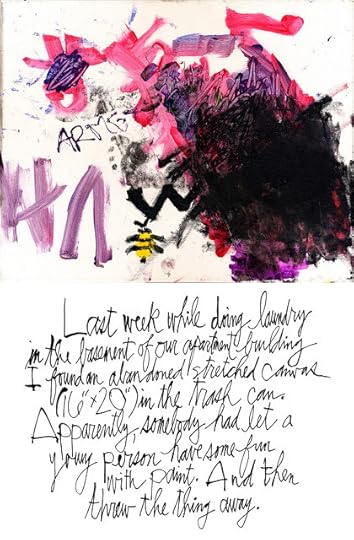 ARMS
HA
W
Last week while doing laundry
in the basement of our apartment building
I found an abandoned stretched canvas
(16"x20") in the trash can.
Apparently, somebody had let a
young person have some fun
with paint. And then
threw the thing away.